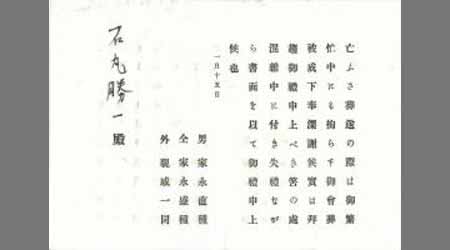 亡ふさ葬送の際は御繁
忙中にも拘らす御會葬
被成下奉深謝候實は拜
趨御禮申上べき筈の處
混雜中に付き失禮なが
ら書面を以て御禮申上
候也
一月十五日
男家永直種
全家永盛種
外親戚一同
石丸勝一殿